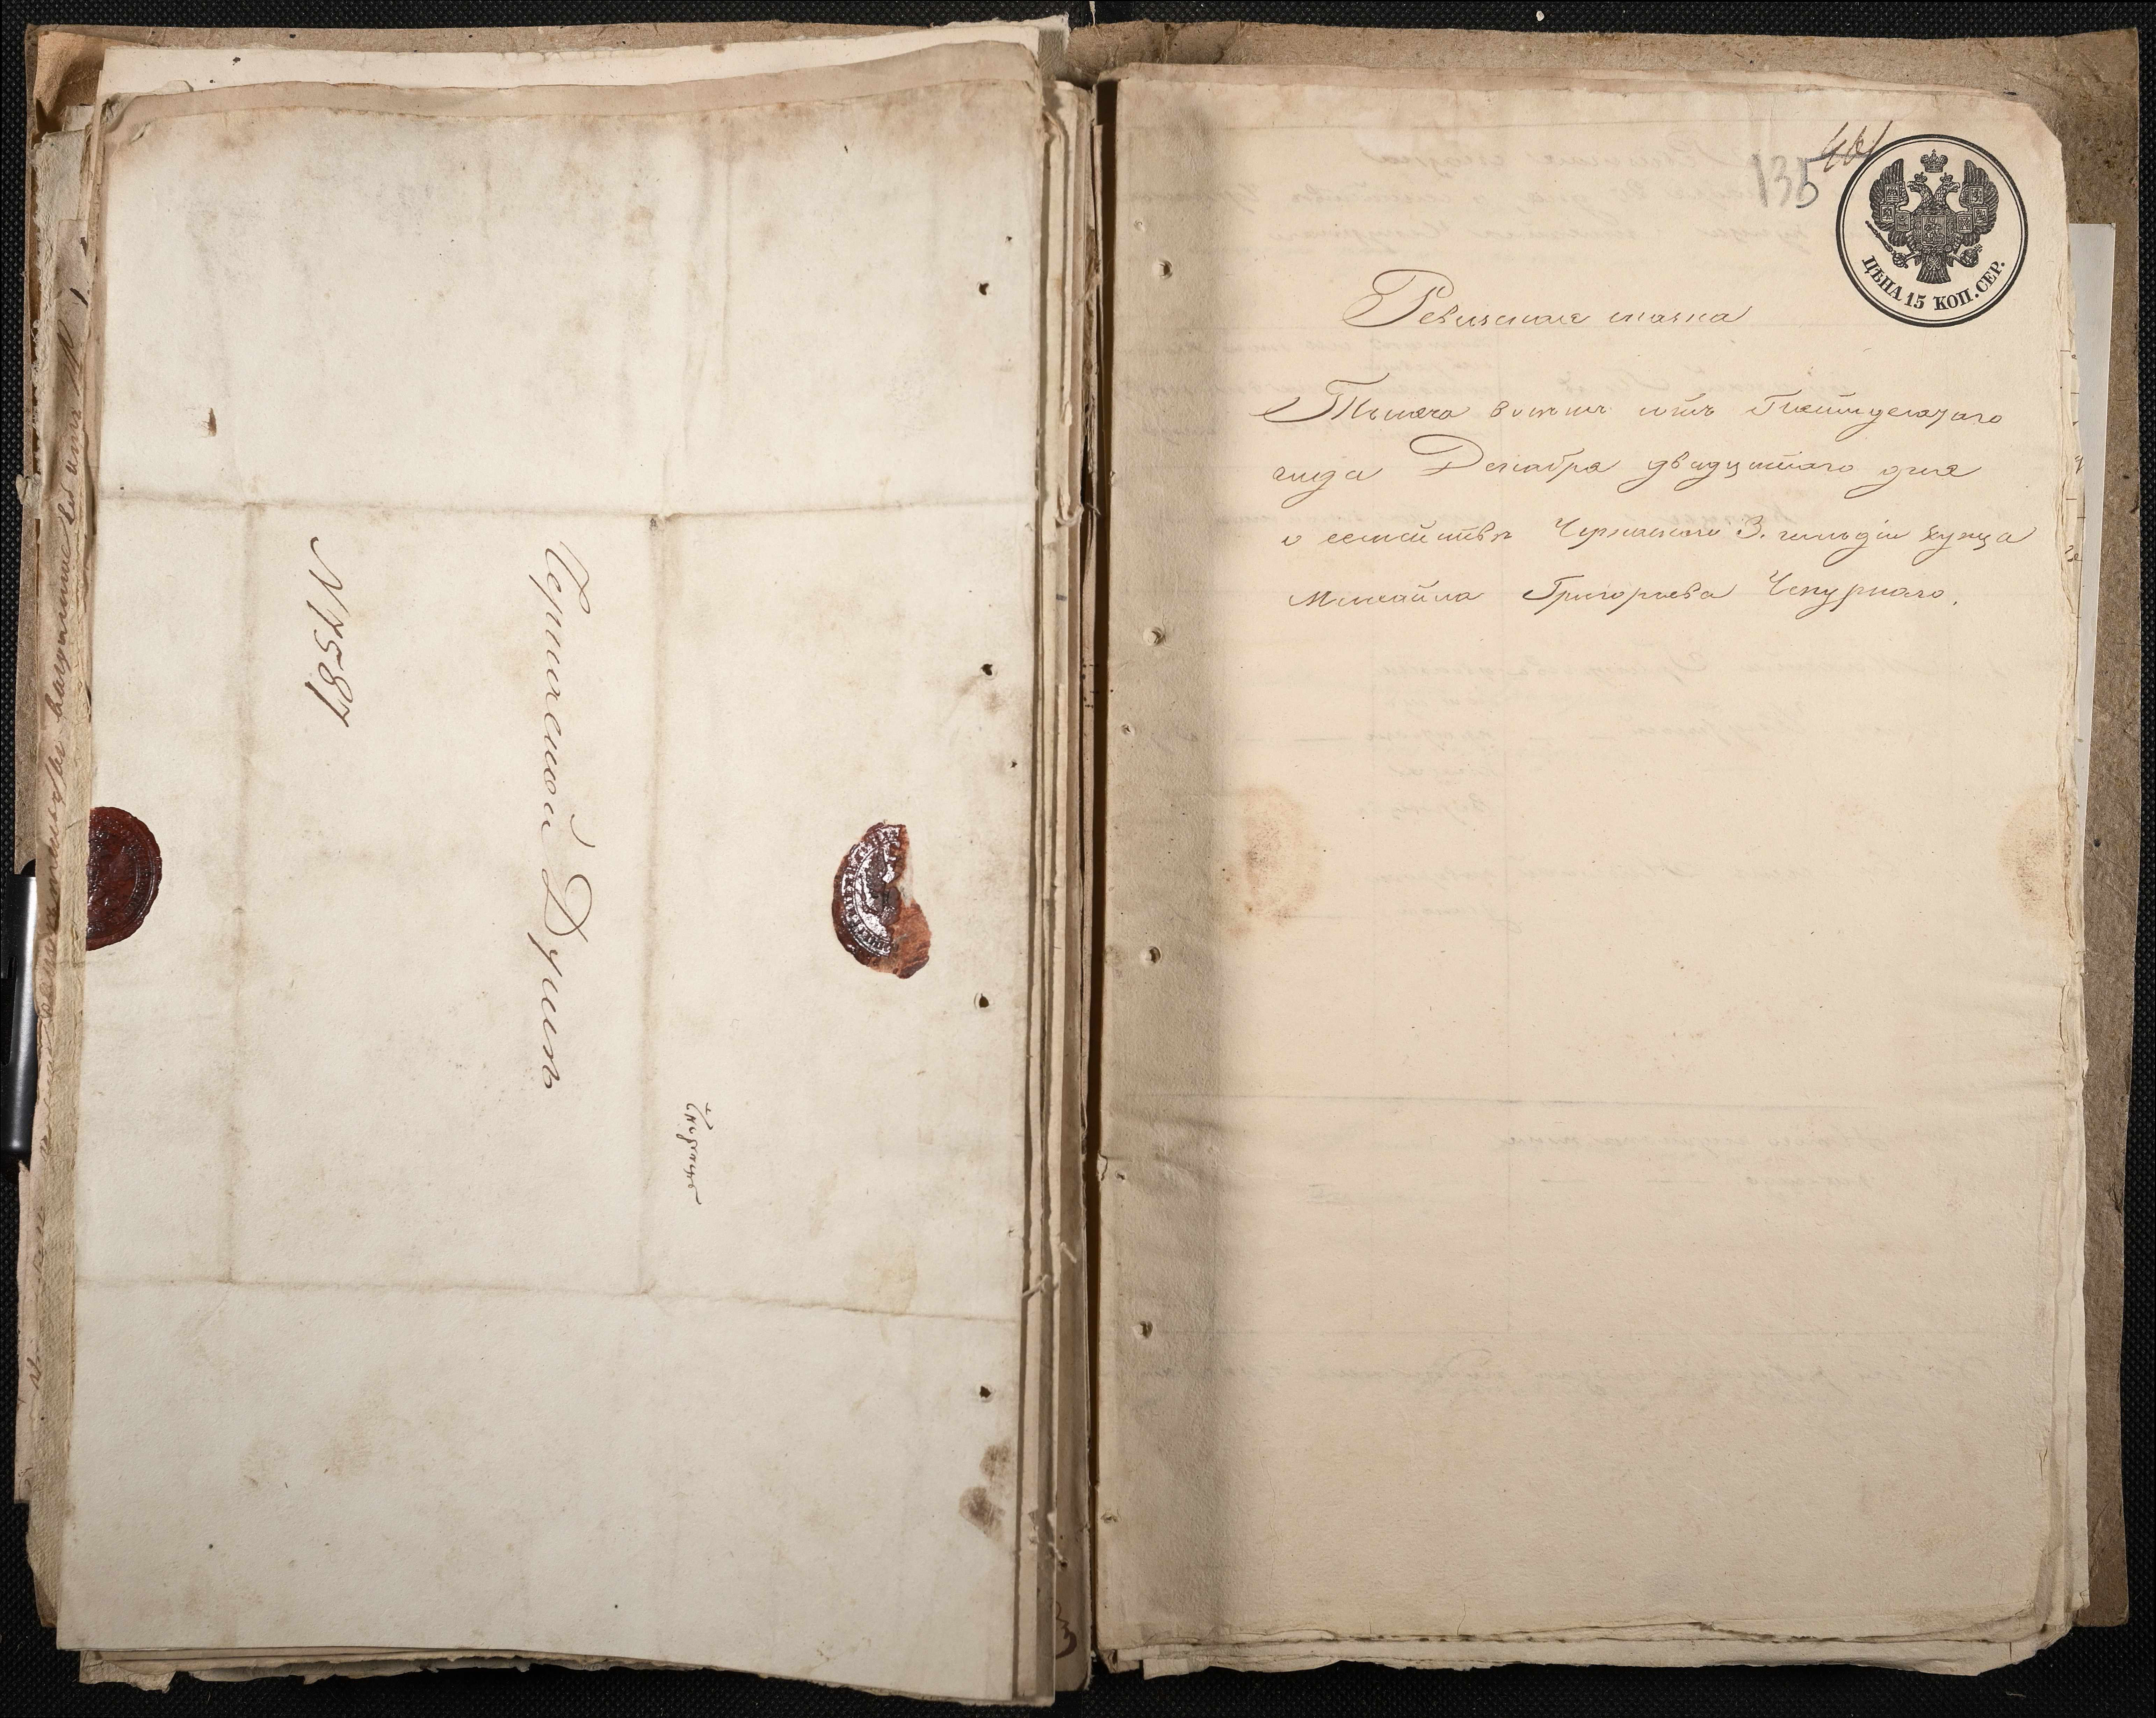 № 7587
Черкаской Думѣ
461
135
ЦѢНА 15 КОП. СЕР.
Ревизская сказка
Тысяча восемь сотъ Пятидесятаго
года Декабря двадцатаго дня
о семействѣ Черкаскаго 3. гильдіи купца
Михайла Григорьева Чепурнаго.